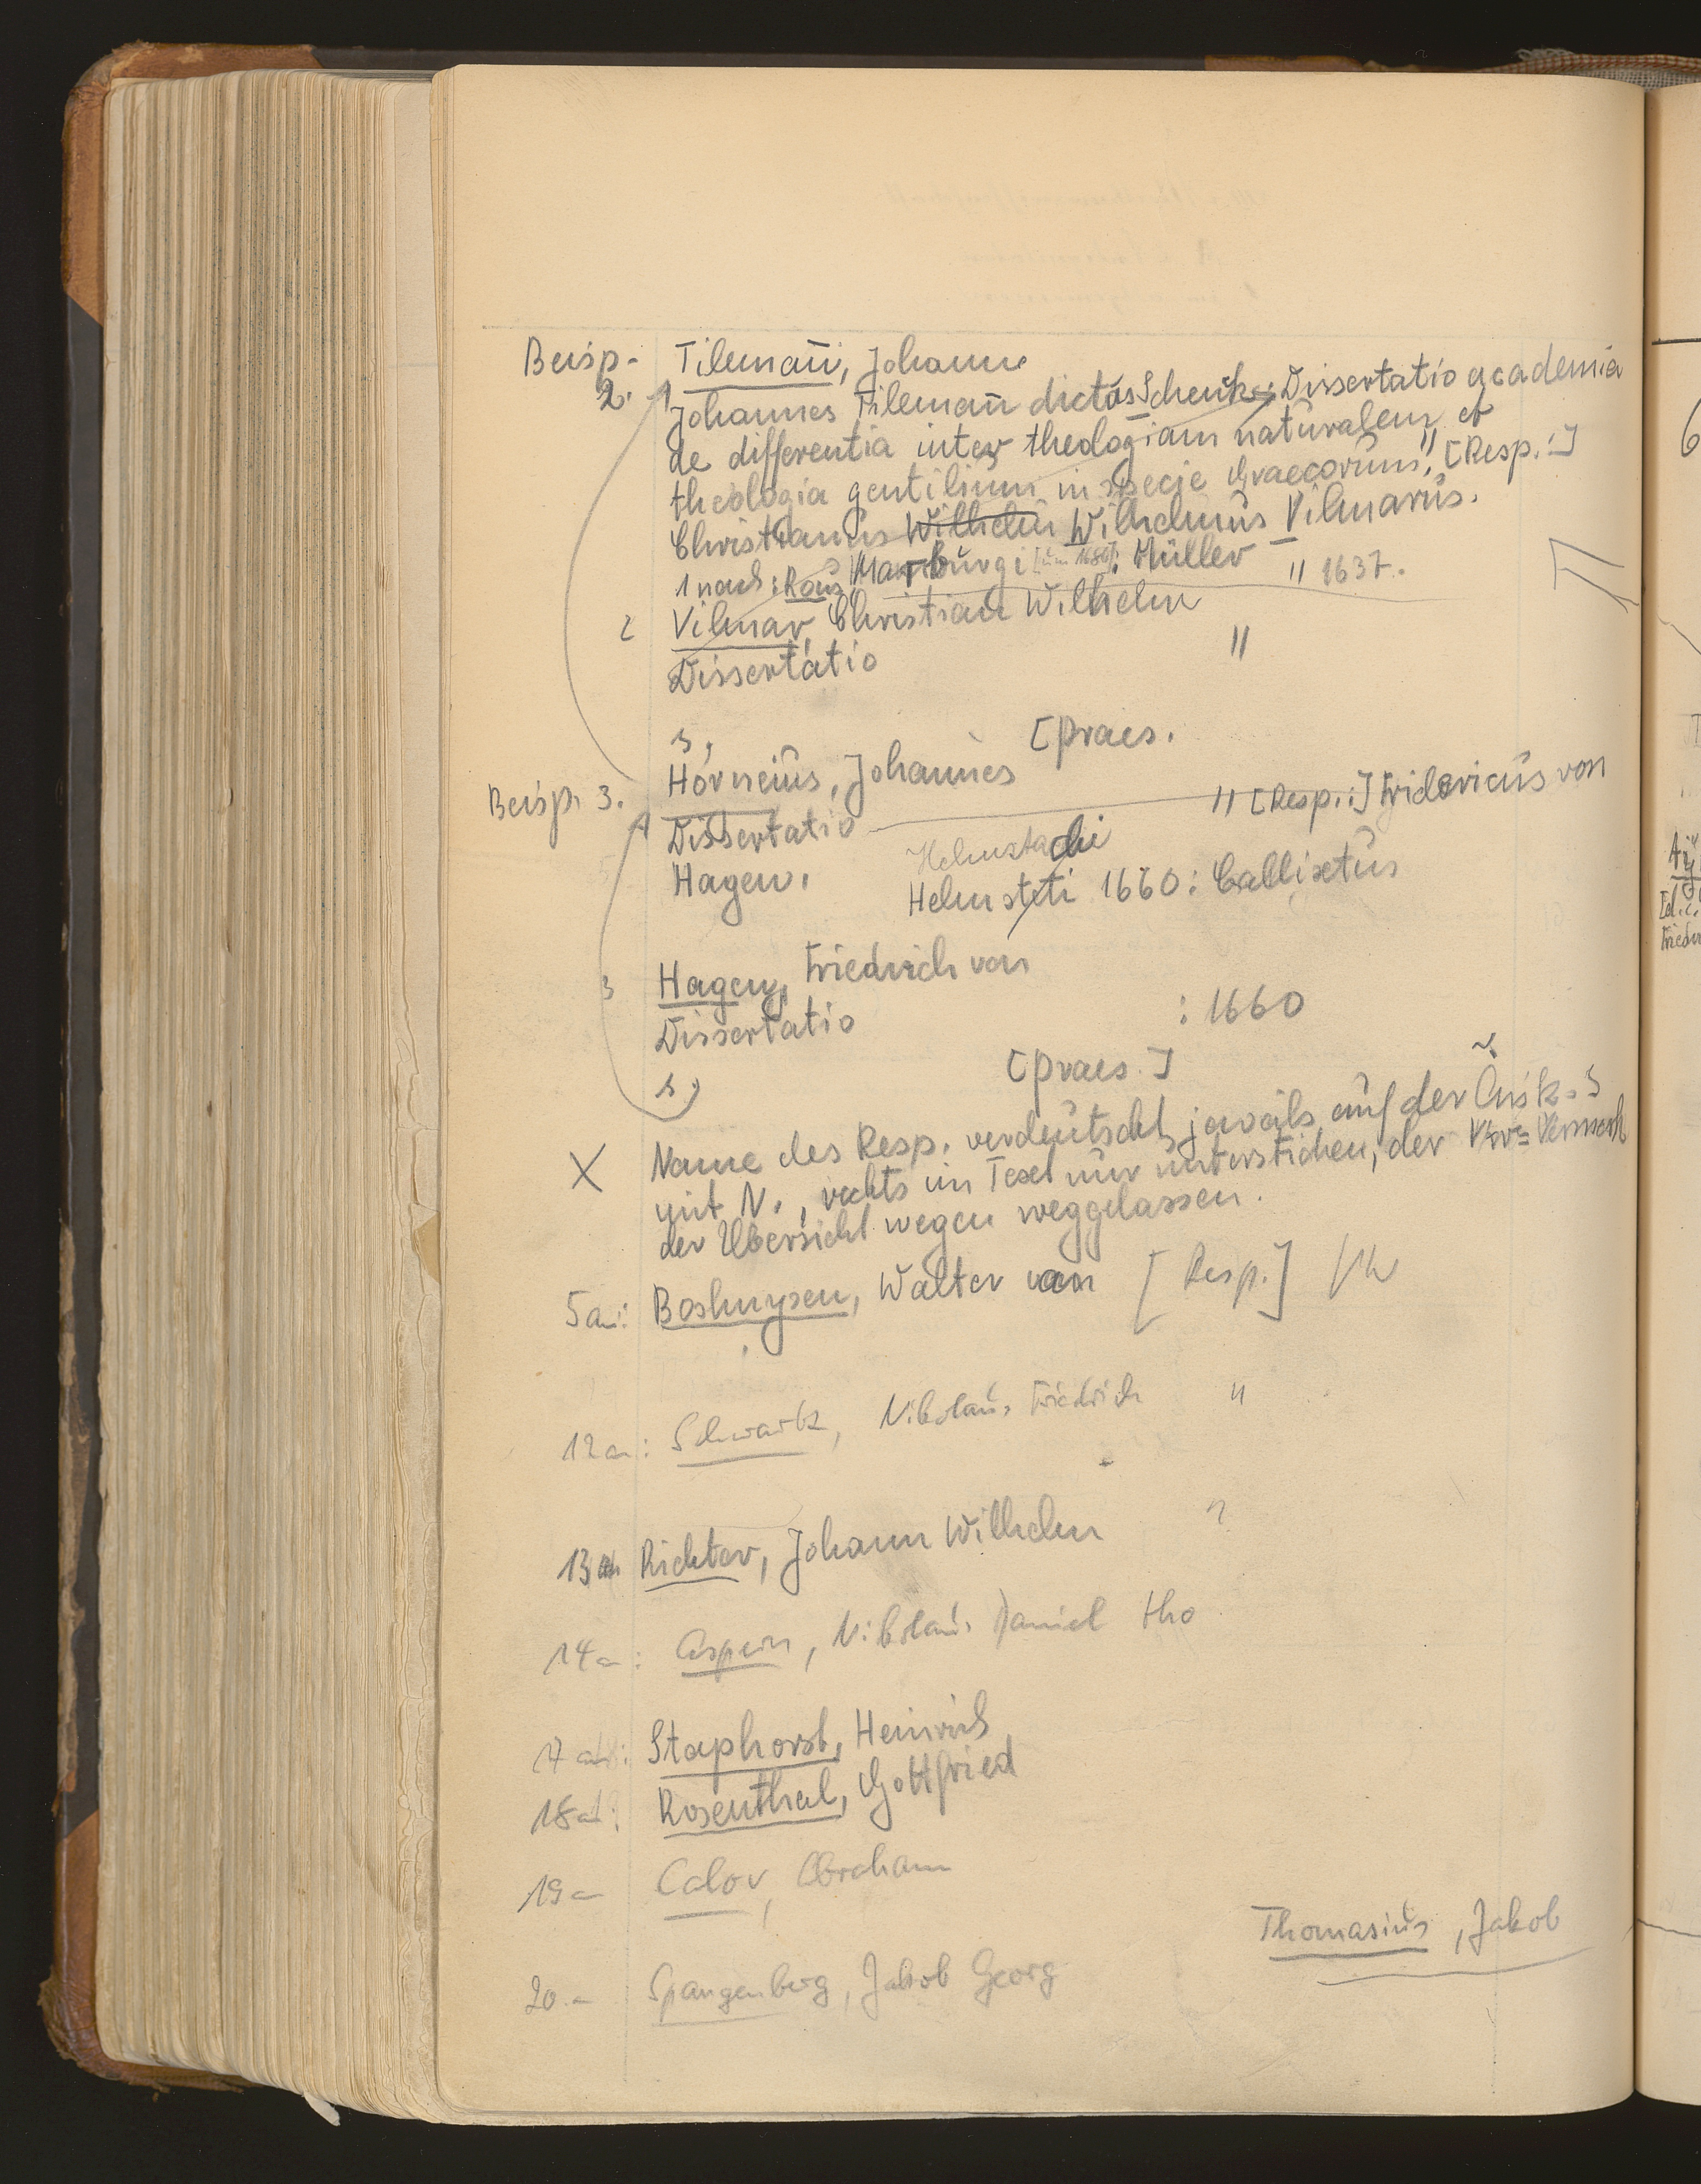 Beisp. Tilemañ, Johann
2. Johannes Tilemañ dictus Schenk: Dissertatio academia
de differentia inter theologiam naturalem et
theologia gentilium in specie Graecorum," [Resp.:]
Christianus Wilhelm Wilhelmus Vilmarus.
1 nach: Rous Marburgi [um 1680]: Müller " 1637.
2 Vilmar, Christian Wilhelm
Dissertatio "
s. [Praes.
Beisp. 3. Horneius, Johannes
Dissertatio " [Resp.:] Fridericus von
Hagen. Helmstadi
Helmsteti 1660: Callixtus
3 Hagen, Friedrich von
Dissertatio : 1660
s. [Praes.]
X Name des Resp. verdeutscht, jeweils auf der
mit N., rechts im Text nur unterstrichen, der
der Übersicht wegen weggelassen.
5a: Boshuysen, Walter van [Resp.]
12a: Schwartz, Nikolaus Friedrich "
13a Richter, Johann Wilhelm "
14a: Nikolaus Daniel
17a: Staphorst, Heinrich
18a: Rosenthal, Gottfried
19a Calov, Abraham
Thomasius, Jakob
20.a Spangenberg, Jakob Georg